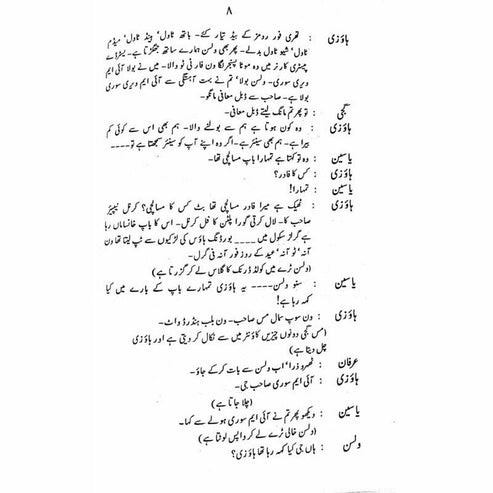 ۸
باؤزی : تھری فور رومز کے بیڈ تیار کئے۔ باتھ ٹاول' ہینڈ ٹاول' میڈم
ٹاول' شیو ٹاول بدلے۔ پھر بھی ولسن ہمارے ساتھ جھگڑتا ہے۔ لیٹرڈے
چیٹری کارنر میں وہ موٹا پسنجر لگا ون فار نی ٹو والا۔ میں نے بولا آئی ایم
ویری سوری۔ ولسن بولا' تم نے بہت آہستگی سے آئی ایم ویری سوری
بولا ہے۔ صاحب سے ڈبل معافی مانگو۔
گئی : تو پھر تم مانگ لیتے ڈبل معافی۔
باؤزی : وہ کون ہوتا ہے ہم سے بولنے والا۔ ہم بھی اس سے کوئی کم
بیرا ہے۔ ہم بھی سینئر ہے۔ اگر وہ اپنے آپ کو سینئر سمجھتا ہے تو۔۔۔۔
یاسین : وہ تو کہتا ہے تمہارا باپ مسالچی تھا۔
باؤزی : کس کا فادر؟
یاسین : تمہارا!
باؤزی : ٹھیک ہے میرا فادر مسالچی تھا بٹ کس کا مسالچی؟ کرنل نیپیئر
صاحب کا۔ لال کرتی گورا پلٹن کا فل کرنل۔ اس کا باپ خانساماں رہا
ہے گرلز سکول میں ۔۔۔۔ بورڈنگ ہاؤس کی لڑکیوں سے ٹپ لیتا تھا ون
آنہ' ٹو آنہ' عید کے روز فور آنہ فی گرل۔
(ولسن ٹرے میں کولڈ ڈرنک کا گلاس لے کر گزرتا ہے)
یاسین : سنو ولسن۔۔۔۔ یہ باؤزی تمہارے باپ کے بارے میں کیا
کہہ رہا ہے!
باؤزی : ون سوپ سمال مس صاحب۔ ون بلب ہنڈرڈ واٹ۔
(مس گئی دونوں چیزیں کاؤنٹر میں سے نکال کر دیتی ہے اور باؤزی
چل دیتا ہے)
عرفان : ٹھہرو ذرا' اب ولسن سے بات کر کے جاؤ۔
باؤزی : آئی ایم سوری صاحب جی۔
(چلا جاتا ہے)
یاسین : دیکھو پھر تم نے آئی ایم سوری ہولے سے کہا۔
(ولسن خالی ٹرے لے کر واپس لوٹتا ہے)
ولسن : ہاں جی کیا کہہ رہا تھا باؤزی؟